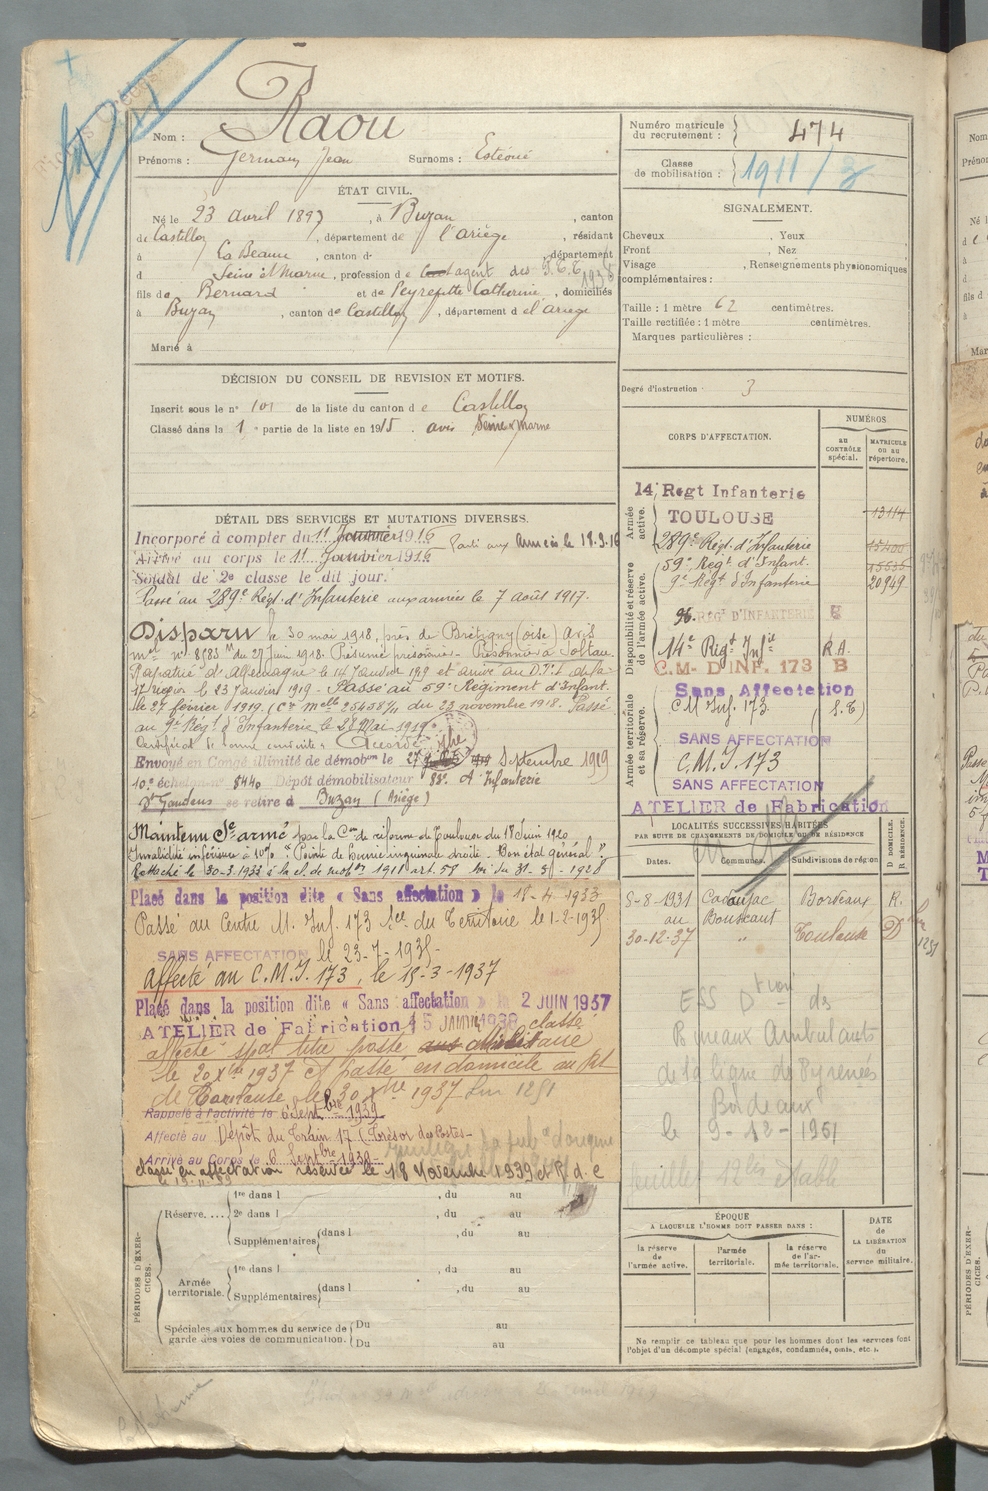 Nom : Raou
Prénoms : Germain Jean Surnoms : Estévié
ÉTAT CIVIL.
Né le 23 avril 1897, à Buzan, canton
de Castillon, département de l'ariège, résidant
à La Beaume, canton d , département
d Seine et Marne, profession de agent des P.T.T. 1938
fils de Bernard et de Peyrefitte Catherine, domiciliés
à Buzan, canton de Castillon, département d el'ariege
Marié à
DÉCISION DU CONSEIL DE REVISION ET MOTIFS.
Inscrit sous le n° 101 de la liste du canton d e Castillon
Classé dans la 1e partie de la liste en 1915. avis Seine & Marne
DÉTAIL DES SERVICES ET MUTATIONS DIVERSES.
Incorporé à compter du 11 Janvier 1916 Parti aux Armées le 19.9.16
Arrivé au corps le 11 Janvier 1916
Soldat de 2e classe le dit jour.
Passé au 289e Régt. d'Infanterie aux armées le 7 août 1917.
Disparu le 30 mai 1918, près de Brétigny (oise) Avis
mel n° 8583 M du 27 Juin 1918. Présumé prisonnier. Prisonnier à Soltau.
Rapatrié d'Allemagne le 14 Janvier 19 et arrivé au D.T.I. de la
17e région le 23 Janvier 1919 - Passé au 59e Régiment d'Infant.
le 27 février 1919. (Cre melle du 23 novembre 1918. Passé
au 9e Régt d'Infanterie le 28 Mai 1919.
Certificat de bonne conduite : Accordé
Envoyé en Congé illimité de démobon le 27 Septembre 1919
10e échelon n° 8440 Dépôt démobilisateur 88e d'Infanterie
St Gaudens se retire à Buzan (Ariège)
Maintenu St armé par la Con de réforme de Toulouse du 18 Juin 1920
Invalidité inférieure à 10% "Pointe de hernie inguinale droite - Bon état général".
Rattaché le 30-3-1933 à la cl. de mobon 1911 art. 58 loi du 31-3-1928
Placé dans la position dite « Sans affectation » le 18-4-1933
Passé au Centre M. Inf. 173 Sce du Territoire le 1-2-1935
SANS AFFECTATION le 23-7-1935
Affecté au C.M.I. 173, le 15-3-1937
Placé dans la position dite « Sans affectation » le 2 JUIN 1937
ATELIER de Fabrication 15 JANV 1938 classé
affecté spal titre poste
le 20 Xbre 1937 et passé en domicile au
de Toulouse le 30 Xbre 1937 1251
Rappelé à l'activité le 6 Septbre 1939
Affecté au Dépôt du Train 17 (Trésor des Postes-
Arrivé au Corps le 6 Septbre 1939
classé en affectation réservée le 18 Novembre 1939
PÉRIODES D'EXERCICES.
Réserve....
1re dans l , du au
2e dans l , du au
Supplémentaires dans l , du au
Armée territoriale.
1re dans l , du au
Supplémentaires dans l , du au
Spéciales aux hommes du service de garde des voies de communication.
Du au
Du au
Numéro matricule du recrutement : 474
Classe de mobilisation : 1911/3
SIGNALEMENT.
Cheveux , Yeux
Front , Nez
Visage , Renseignements physionomiques
complémentaires :
Taille : 1 mètre 62 centimètres.
Taille rectifiée : 1 mètre centimètres.
Marques particulières :
Degré d'instruction : 3
CORPS D'AFFECTATION.
NUMÉROS
au CONTRÔLE spécial.
MATRICULE ou au répertoire.
Armée active.
14e Regt Infanterie
TOULOUSE 13114
Disponibilité et réserve de l'armée active.
289e Régt. d'Infanterie 15400
59e Régt d'Infant. 15535
9e Régt d'Infanterie 20949
96. REGt D'INFANTERIE
14e Régt Infie R.A.
C.M. D'INF. 173 B
Armée territoriale et sa réserve.
Sans Affectation
CM Inf. 173 (S.T.)
SANS AFFECTATION
C.M.I. 173
SANS AFFECTATION
ATELIER de Fabrication
LOCALITÉS SUCCESSIVES HABITÉES
PAR SUITE DE CHANGEMENTS DE DOMICILE OU DE RÉSIDENCE
Dates. Communes. Subdivisions de région D DOMICILE. R RÉSIDENCE.
5-8-1931 Cadaujac Bordeaux R.
au Bouscaut
30-12-37 " Toulouse D
1251
ESS Dtion des
Bureaux Ambulants
de la ligne des Pyrénées
Bordeaux
le 9-12-1951
feuillet 12 établi
ÉPOQUE
A LAQUELLE L'HOMME DOIT PASSER DANS :
la réserve de l'armée active.
l'armée territoriale.
la réserve de l'armée territoriale.
DATE de LA LIBÉRATION du service militaire.
Ne remplir ce tableau que pour les hommes dont les services font
l'objet d'un décompte spécial (engagés, condamnés, omis, etc.).